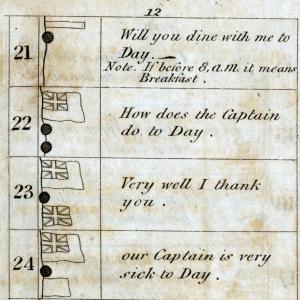 12
21
Will you dine with me to
Day.
Note. If before 8, a.m. it means
Breakfast.
22
How does the Captain
do to Day.
23
Very well I thank
you.
24
our Captain is very
sick to Day.